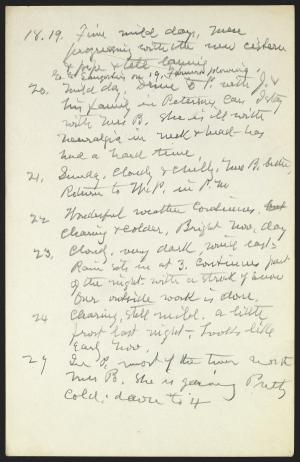 18.19. Fine mild days, Men
progressing with the new cistern
& pipe & tile laying
on 19, Farmers plowing
20. Mild day, Drive to P. with J. &
his family in Peterson Car. I stay
with Mrs B. She is ill with
neuralgia in neck & head - has
had a hard time.
21, Sunday, Cloudy & chilly, Mrs B. better,
Return to W.P. in P.M
22 Wonderful weather continues.
Clearing & colder, Bright Nov. day
23, Cloudy, very dark, wind east -
Rain sets in at 3. Continues part
of the night with a streak of snow
Our outside work is done.
24 Clearing, still mild. a little
frost last night - Looks like
Early Nov.
29 In P. most of the time with
Mrs B. She is gaining Pretty
Cold: down to 4